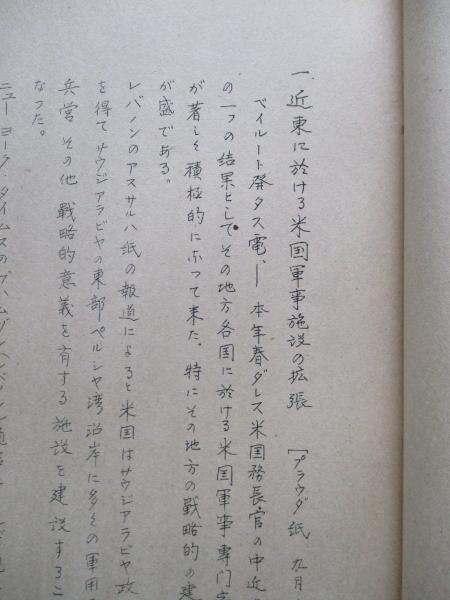 一、近東に於ける米国軍事施設の拡張 [プラウダ紙、九月
ベイルート発タス電、— 本年春ダレス米国務長官の中近
の一つの結果としてその地方各国に於ける米国軍事専門
が著しく積極的になつて来た。特にその地方の戦略的の建
が盛である。
レバノンのアスサルハ紙の報道によると米国はサウジアラビヤ政
を得てサウジアラビヤの東部ペルシヤ湾沿岸に多くの軍用
兵営 その他 戦略的意義を有する施設を建設するこ
なつた。
ニューヨーク・タイムスの